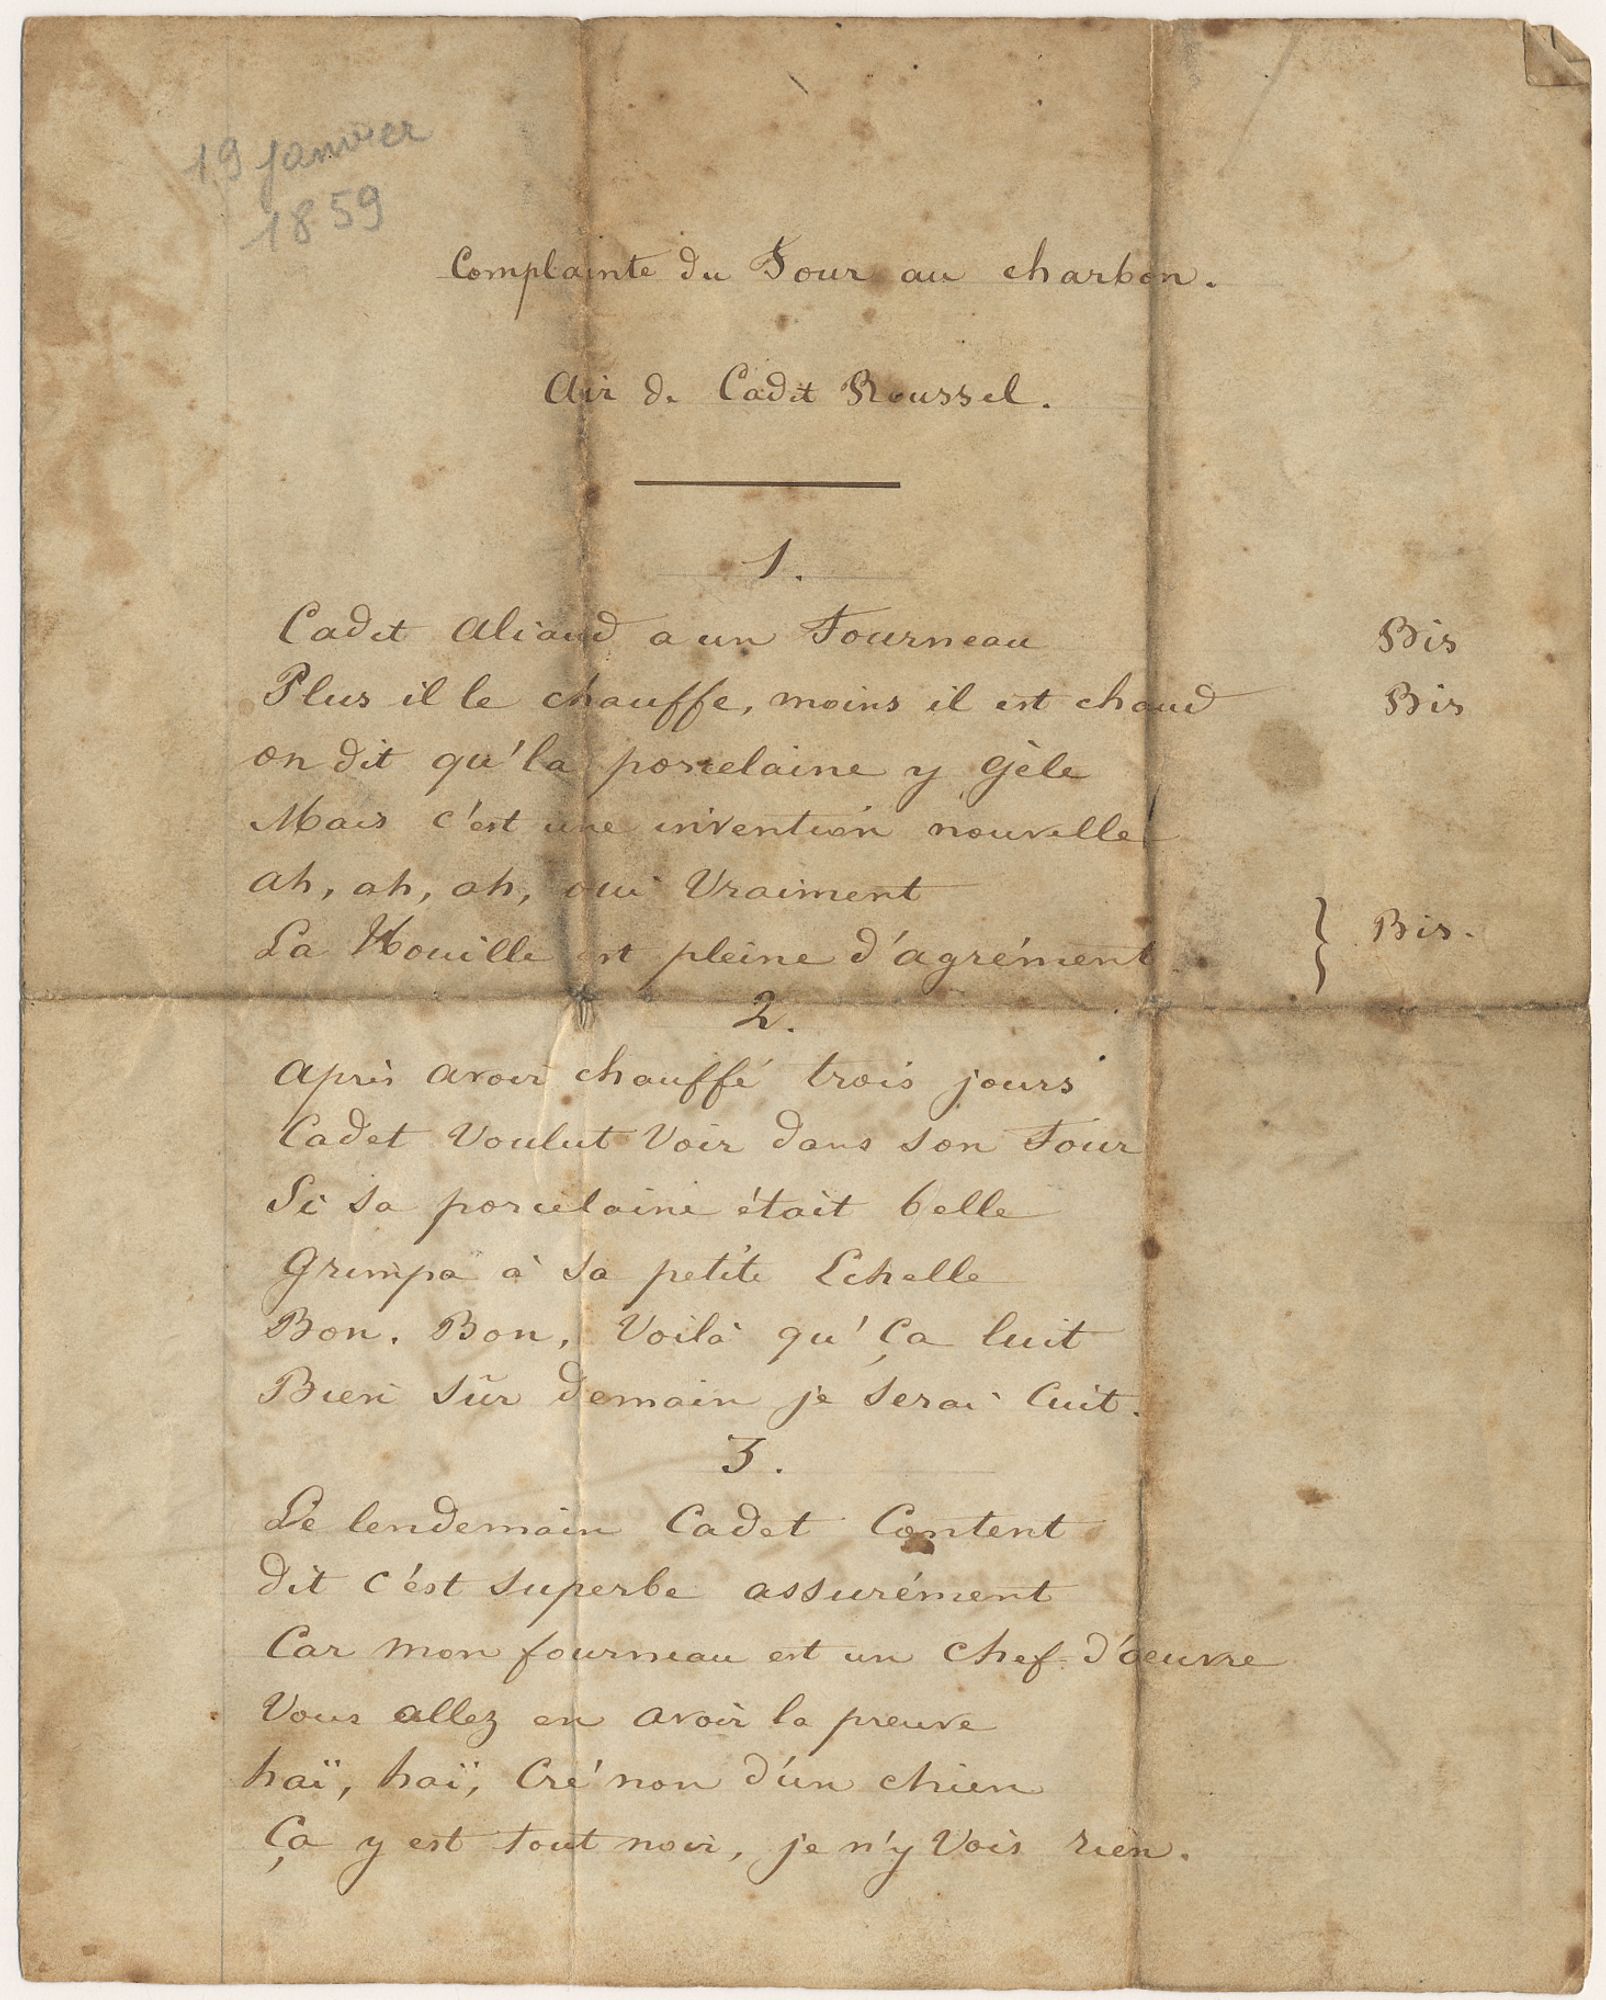 19 janvier
1859
Complainte du Four au charbon.
Air de Cadet Roussel.
1.
Cadet Aliaud a un Fourneau Bis
Plus il le chauffe, moins il est chaud Bis
on dit qu'la porcelaine y gèle
Mais c'est une invention nouvelle
ah, ah, ah, oui Vraiment
La Houille est pleine d'agrément } Bis.
2.
Après avoir chauffé trois jours
Cadet Voulut Voir dans son Four
Si sa porcelaine était belle
Grimpa à sa petite Echelle
Bon. Bon, Voilà qu'ça luit
Bien sûr demain je serai Cuit.
3.
Le lendemain Cadet Content
dit c'est superbe assurément
Car mon fourneau est un chef-d'oeuvre
Vous allez en avoir la preuve
haï, haï, Cré non d'un chien
Ça y est tout noir, je n'y Vois rien.